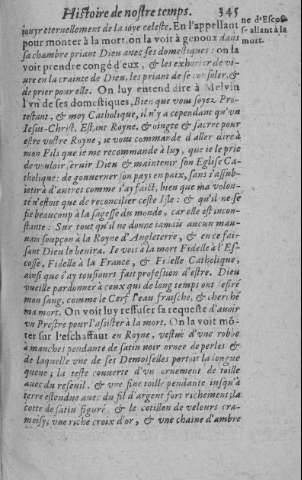 Histoire de nostre temps. 345
iouyr eternellement de la ioye celeste. En l'appellant
pour monter à la mort, on la voit à genoux dans
sa chambre priant Dieu avec ses domestiques: on la
voit prendre congé d'eux, & les exhorter de vi-
ure en la crainte de Dieu, les priant de se consoler, &
de prier pour elle. On luy entend dire à Melvin
l'vn de ses domestiques, Bien que vous soyez Pro-
testant, & moy Catholique, il n'y a cependant qu'vn
Iesus-Christ. Estant Royne, & oingte & sacree pour
estre vostre Royne, ie vous commande d'aller dire à
mon Fils que ie me recommande à luy, que ie le prie
de vouloir seruir Dieu & maintenir son Eglise Ca-
tholique: de gouuerner son pays en paix, sans s'assub-
iettir à d'autres comme i'ay faict, bien que ma volon-
té n'estoit que de reconcilier ceste Isle: & qu'il ne se
fie beaucoup à la sagesse du monde, car elle est incon-
stante: Sur tout qu'il ne donne iamais aucun mau-
uais soupçon à la Royne d'Angleterre, & en ce fai-
sant Dieu le benira. Ie vois à la mort Fidelle à l'Es-
cosse, Fidelle à la France, & Fidelle Catholique,
ainsi que i'ay tousiours fait profession d'estre. Dieu
vueille pardonner à ceux qui de long temps ont desiré
mon sang, comme le Cerf l'eau fraische, & cherché
ma mort. On voit luy reffuser sa requeste d'auoir
vn Prestre pour l'assister à la mort. On la voit mô-
ter sur l'eschaffaut en Royne, vestuë d'vne robbe
à manches pendante de satin noir ornee de perles &
de laquelle vne de ses Demoiselles portait la longue
queue; la teste couuerte d'vn ornement de toille
auec du reseuil, & vne fine toille pendante iusqu'à
terre estendue auec du fil d'argent fort richement; la
cotte de satin figuré & le cotillon de velours cra-
moisy; vne riche croix d'or, & vne chaine d'ambre
ne d'Escosse
se allant à la
mort.